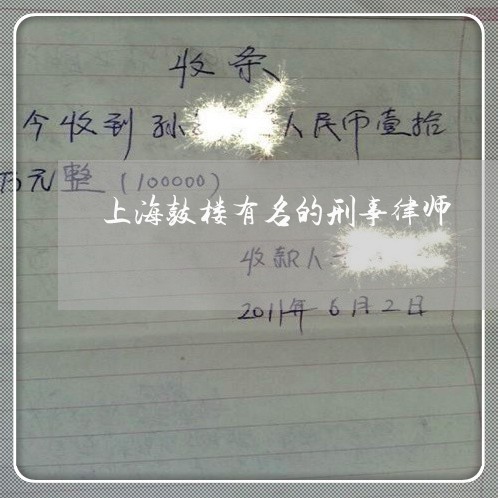 收条
今收到孙 人民币壹拾
万元整(100000)
上海鼓楼有名的刑事律师
收款人
2011年6月2日